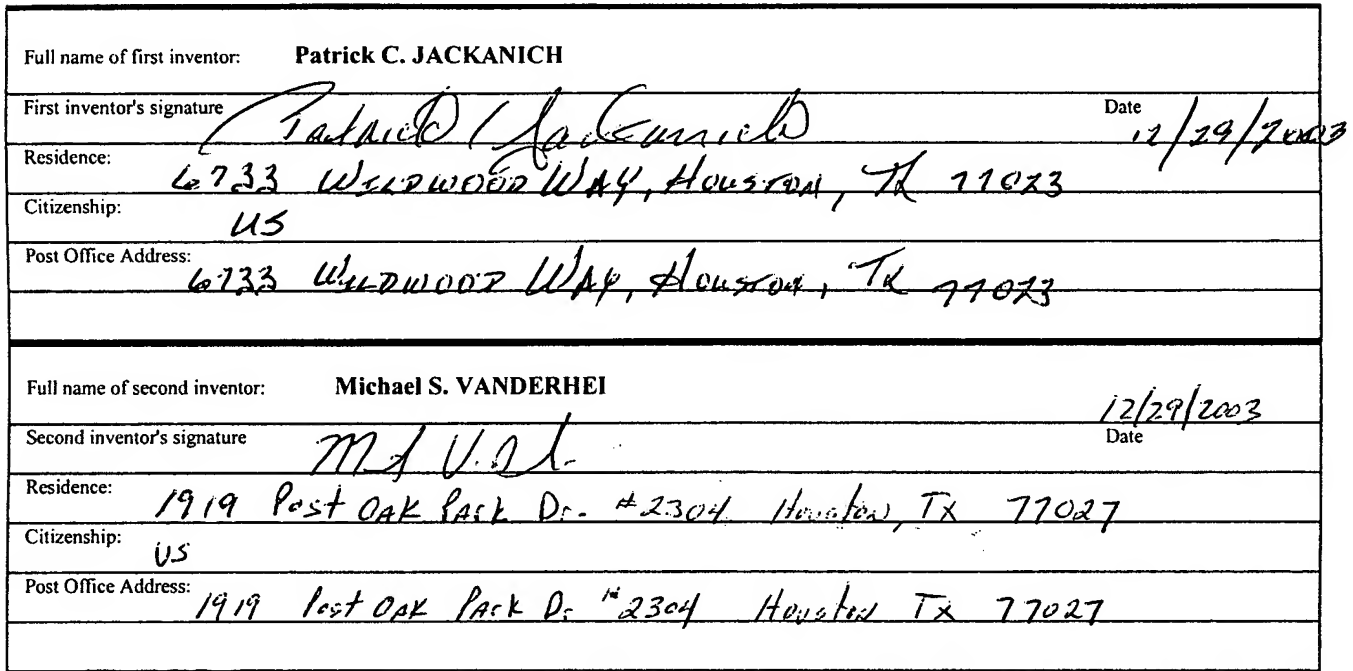 Full name of first inventor: Patrick C. JACKANICH
First inventor's signature Patrick C Jackanich Date 12/29/2003
Residence: 6733 WILDWOOD WAY, HOUSTON, TX 77023
Citizenship: US
Post Office Address: 6733 WILDWOOD WAY, HOUSTON, TX 77023
Full name of second inventor: Michael S. VANDERHEI
12/29/2003
Second inventor's signature Date
Residence: 1919 Post OAK PArk Dr. #2304 Houston, TX 77027
Citizenship: US
Post Office Address: 1919 Post OAK PArk Dr #2304 Houston TX 77027